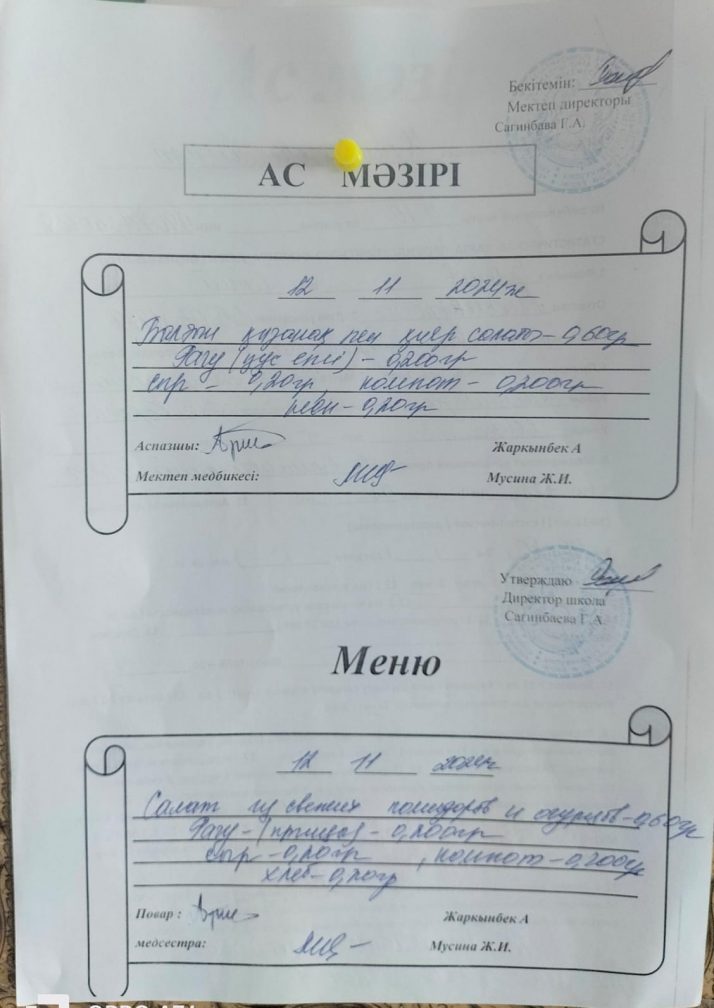 Бекітемін:
Мектеп директоры
Сагинбава Г.А.
АС МӘЗІРІ
12 11 2024ж
Балғын қызанақ пен қияр салат - 0,60гр
Рагу (құс еті) - 0,200гр
сыр - 0,20гр, компот - 0,200гр
нан - 0,20гр
Аспазшы: Жаркынбек А
Мектеп медбикесі: Мусина Ж.И.
Утверждаю
Директор школа
Сагинбаева Г.А.
Меню
12 11 2024г
Салат из свежих помидоров и огурцов - 0,60гр
Рагу - (птица) - 0,200гр
сыр - 0,20гр, компот - 0,200гр
хлеб - 0,20гр
Повар : Жаркынбек А
медсестра: Мусина Ж.И.